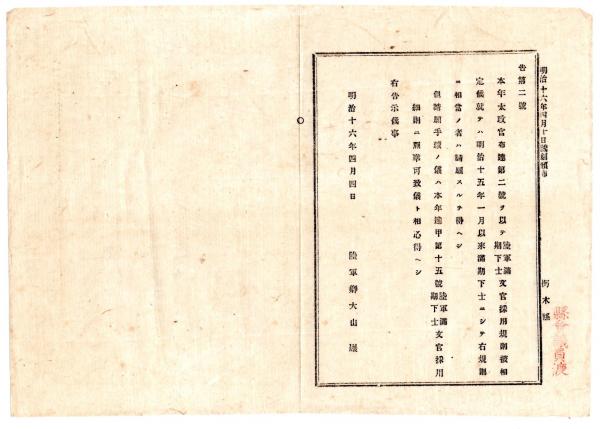 明治十六年四月十日
栃木縣
告第二號
本年太政官布達第二號ヲ以テ陸軍滿期下士文官採用規則被相
定候就テハ明治十五年一月以來滿期下士ニシテ右規則
ニ相當ノ者ハ請願スルヲ得ヘシ
但請願手續ノ儀ハ本年達甲第十五號陸軍滿期下士文官採用
細則ニ照準可致儀ト相心得ヘシ
右告示候事
明治十六年四月四日
陸軍卿大山巖